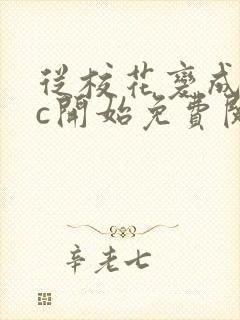 從校花變成
c開始免費閱
辛老七